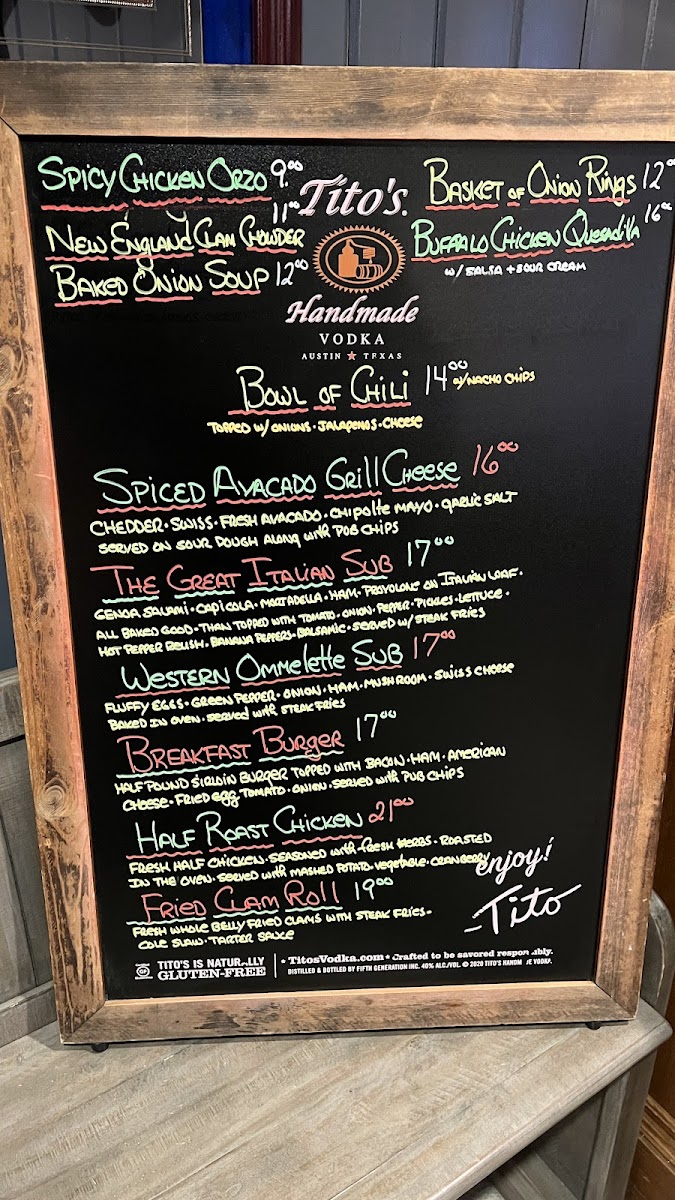 SPICY CHICKEN ORZO 9.00
NEW ENGLAND CLAM CHOWDER 11.00
BAKED ONION SOUP 12.00
Tito's.
Handmade
VODKA
AUSTIN ★ TEXAS
BASKET OF ONION RINGS 12.00
BUFFALO CHICKEN QUESADILLA 16.00
W/ SALSA + SOUR CREAM
BOWL OF CHILI 14.00 W/NACHO CHIPS
TOPPED W/ ONIONS · JALAPENOS · CHEESE
SPICED AVACADO GRILL CHEESE 16.00
CHEDDER · SWISS · FRESH AVACADO · CHIPOLTE MAYO · GARLIC SALT
SERVED ON SOUR DOUGH ALONG WITH PUB CHIPS
THE GREAT ITALIAN SUB 17.00
GENOA SALAMI · CAPICOLA · MORTADELLA · HAM · PROVOLONE ON ITALIAN LOAF ·
ALL BAKED GOOD · THAN TOPPED WITH TOMATO · ONION · PEPPER · PICKLES · LETTUCE ·
HOT PEPPER RELISH · BANANA PEPPERS · BALSAMIC · SERVED W/ STEAK FRIES
WESTERN OMMELETTE SUB 17.00
FLUFFY EGGS · GREEN PEPPER · ONION · HAM · MUSHROOM · SWISS CHEESE
BAKED IN OVEN · SERVED WITH STEAK FRIES
BREAKFAST BURGER 17.00
HALF POUND SIRLOIN BURGER TOPPED WITH BACON · HAM · AMERICAN
CHEESE · FRIED EGG TOMATO · ONION · SERVED WITH PUB CHIPS
HALF ROAST CHICKEN 21.00
FRESH HALF CHICKEN · SEASONED WITH FRESH HERBS · ROASTED
IN THE OVEN · SERVED WITH MASHED POTATO · VEGETABLE · CRANBERRY
enjoy!
-Tito
FRIED CLAM ROLL 19.00
FRESH WHOLE BELLY FRIED CLAMS WITH STEAK FRIES -
COLE SLAW · TARTER SAUCE
GF
TITO'S IS NATURALLY
GLUTEN-FREE
★ TitosVodka.com ★ Crafted to be savored responsibly.
DISTILLED & BOTTLED BY FIFTH GENERATION INC. 40% ALC./VOL. © 2020 TITO'S HANDMADE VODKA.